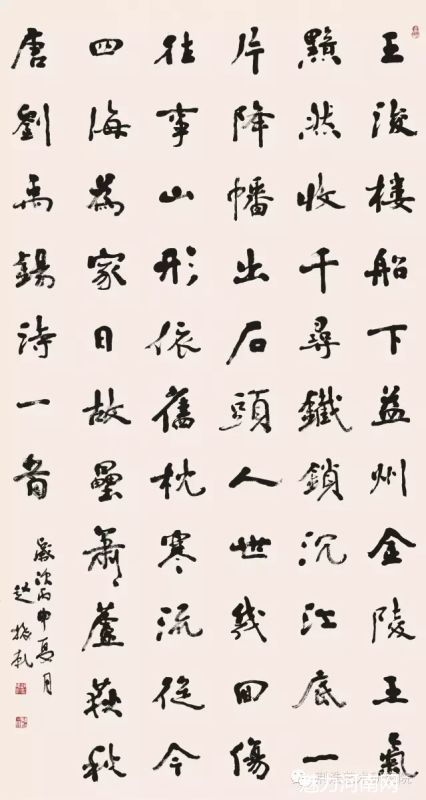 王浚楼船下益州金陵王氣
黯然收千尋鐵鎖沉江底一
片降幡出石頭人世幾回傷
往事山形依舊枕寒流從今
四海為家日故壘蕭〻蘆荻秋
唐劉禹錫詩一首
歲次丙申夏月
趙振乾
魅力河南网